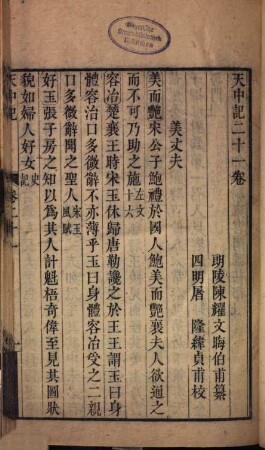 天中記二十一卷
朗陵陳耀文晦伯甫纂
四明屠隆緯貞甫校
美丈夫
美而艷宋公子鮑禮於國人鮑美而艷襄夫人欲通之
而不可乃助之施左文十六
容冶楚襄王時宋玉休歸唐勒讒之於王王謂玉曰身
體容冶口多微辭不亦薄乎玉曰身體容冶受之二親
口多微辭聞之聖人宋玉風賦
好玉張子房之知以為其人計魁梧奇偉至見其圖狀
貌如婦人好女史記
天中記
卷二十一
一